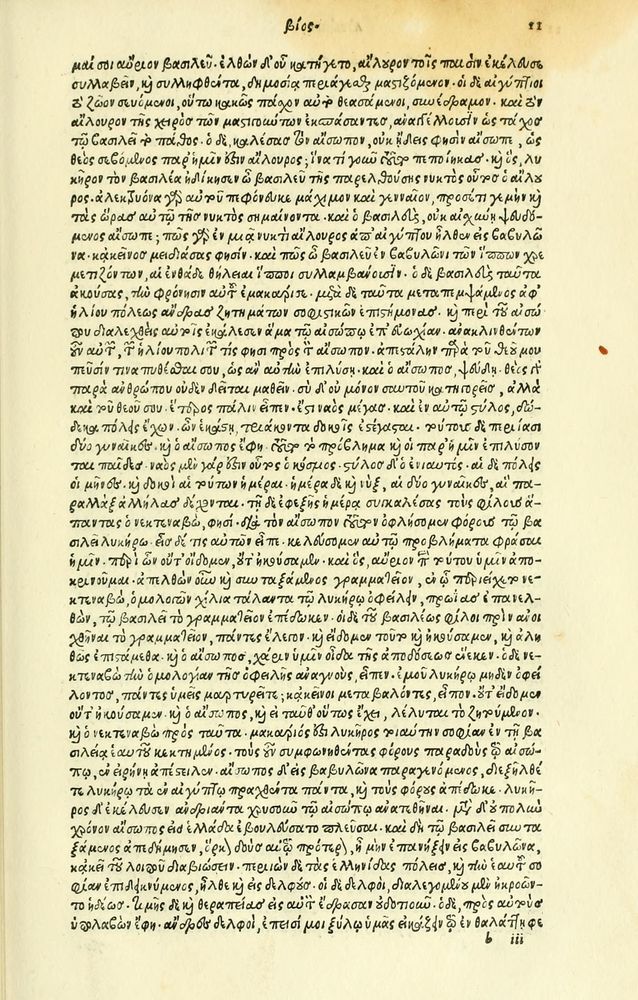 βίος.
11
μαί σοι αὔριον βασιλεῦ. ἐλθὼν δ' οὖν κατήγετο, αἴλουρον τοῖς παισὶν ἐκέλευσε
συλλαβεῖν, καὶ συλληφθέντα, δημοσίᾳ περιάγεσθαι μαστιζόμενον. οἱ δὲ αἰγύπτιοι
τὸ ζῶον σεβόμενοι, οὕτω κακῶς πάσχον αὐτὸ θεασάμενοι, συνέδραμον. καὶ τὸν
αἴλουρον τῆς χειρὸς τῶν μαστιζόντων ἐκσπάσαντες, ἀναγγέλλουσιν ὡς τάχος
τῷ βασιλεῖ τὸ πάθος. ὁ δὲ, καλέσας τὸν αἴσωπον, οὐκ ᾔδεις φησὶν αἴσωπε, ὡς
θεὸς σεβόμενος παρ' ἡμῖν ἐστιν αἴλουρος; ἵνα τί γοῦν τοῦτο πεποίηκας. καὶ ὃς, λυ
κῆρον τὸν βασιλέα ἠδίκησεν ὦ βασιλεῦ τῆς παρελθούσης νυκτὸς οὗτος ὁ αἴλου
ρος. ἀλεκτρυόνα γὰρ αὐτοῦ πεφόνευκε μάχιμον καὶ γενναῖον, προσέτι γε μὴν καὶ
τὰς ὥρας αὐτῷ τῆς νυκτὸς σημαίνοντα. καὶ ὁ βασιλεὺς, οὐκ αἰσχύνῃ ψευδό-
μενος αἴσωπε; πῶς γὰρ ἐν μιᾷ νυκτὶ αἴλουρος ἀπ' αἰγύπτου ἦλθεν εἰς βαβυλῶ
να. κἀκεῖνος μειδιάσας φησίν. καὶ πῶς ὦ βασιλεῦ ἐν βαβυλῶνι τῶν ἵππων χρε
μετιζόντων, αἱ ἐνθάδε θήλειαι ἵπποι συλλαμβάνουσιν. ὁ δὲ βασιλεὺς ταῦτα
ἀκούσας, τὴν φρόνησιν αὐτοῦ ἐμακάρισε. μετὰ δὲ ταῦτα μεταπεμψάμενος ἀφ'
ἡλίου πόλεως ἄνδρας ζητημάτων σοφιστικῶν ἐπιστήμονας. καὶ περὶ τοῦ αἰσώ
που διαλεχθεὶς αὐτοῖς ἐκάλεσεν ἅμα τῷ αἰσώπῳ ἐπ' εὐωχίαν. ἀνακλινθέντων
οὖν αὐτῶν, τῶν ἡλίου πολιτῶν τίς φησι πρὸς τὸν αἴσωπον. ἀπεστάλην παρὰ τοῦ θεοῦ μου
πεῦσίν τινα πυθέσθαι σου, ὡς ἂν αὐτὴν ἐπιλύσῃ. καὶ ὁ αἴσωπος, ψεύδῃ. θεὸς γὰρ
παρὰ ἀνθρώπου οὐδὲν δεῖται μαθεῖν. σὺ δ' οὐ μόνον σαυτοῦ κατηγορεῖς, ἀλλὰ
καὶ τοῦ θεοῦ σου. ἕτερος πάλιν εἶπεν. ἔστι ναὸς μέγας. καὶ ἐν αὐτῷ στύλος, δώ-
δεκα πόλεις ἔχων. ὧν ἑκάστη, τριάκοντα δοκοῖς ἐστέγασται. τούτους δὲ περιίασι
δύο γυναῖκες. καὶ ὁ αἴσωπος ἔφη. τοῦτο τὸ πρόβλημα καὶ οἱ παρ' ἡμῖν ἐπιλύσον
ται παῖδες. ναὸς μὲν γάρ ἐστιν οὗτος ὁ κόσμος. στύλος δ' ὁ ἐνιαυτός. αἱ δὲ πόλεις
οἱ μῆνες. καὶ δοκοὶ αἱ τούτων ἡμέραι. ἡμέρα δὲ καὶ νὺξ, αἱ δύο γυναῖκες, αἳ πα-
ραλλὰξ ἀλλήλας διέχονται. τῇ δὲ ἐφεξῆς ἡμέρᾳ συγκαλέσας τοὺς φίλους ἅ-
παντας ὁ νεκτεναβὼ, φησὶ. διὰ τὸν αἴσωπον τοῦτον ὀφλήσομεν φόρους τῷ βα
σιλεῖ λυκήρῳ. εἷς δέ τις αὐτῶν εἶπε. κελεύσομεν αὐτῷ προβλήματα φράσαι
ἡμῖν. περὶ ὧν οὔτ' εἴδομεν, οὔτ' ἠκούσαμεν. καὶ ὃς, αὔριον περὶ τούτου ὑμῖν ἀπο-
κρινοῦμαι. ἀπελθὼν οὖν καὶ συνταξάμενος γραμματεῖον, ἐν ᾧ περιείχετο νε-
κτεναβὼ, ὁμολογῶν χίλια τάλαντα τῷ λυκήρῳ ὀφείλειν, πρωΐας ἐπανελ-
θὼν, τῷ βασιλεῖ τὸ γραμματεῖον ἐπέδωκεν. οἱ δὲ τοῦ βασιλέως φίλοι πρὶν ἀνοι
χθῆναι τὸ γραμματεῖον, πάντες ἔλεγον. καὶ εἴδομεν τοῦτο καὶ ἠκούσαμεν, καὶ ἀλη
θῶς ἐπιστάμεθα. καὶ ὁ αἴσωπος, χάριν ὑμῖν οἶδα τῆς ἀποδόσεως ἕνεκεν. ὁ δὲ νε-
κτεναβὼ τὴν ὁμολογίαν τῆς ὀφειλῆς ἀναγνοὺς, εἶπεν. ἐμοῦ λυκήρῳ μηδὲν ὀφεί
λοντος, πάντες ὑμεῖς μαρτυρεῖτε; κἀκεῖνοι μεταβαλόντες, εἶπον. οὔτ' εἴδομεν
οὔτ' ἠκούσαμεν. καὶ ὁ αἴσωπος, καὶ εἰ ταῦθ' οὕτως ἔχει, λέλυται τὸ ζητούμενον.
καὶ ὁ νεκτεναβὼ πρὸς ταῦτα. μακάριός ἐστι λυκῆρος τοιαύτην σοφίαν ἐν τῇ βα
σιλείᾳ ἑαυτοῦ κεκτημένος. τοὺς οὖν συμφωνηθέντας φόρους παραδοὺς τῷ αἰσώ-
πῳ, ἐν εἰρήνῃ ἀπέστειλεν. αἴσωπος δ' εἰς βαβυλῶνα παραγενόμενος, διεξῆλθέ
τε λυκήρῳ τὰ ἐν αἰγύπτῳ πραχθέντα πάντα, καὶ τοὺς φόρους ἀπέδωκε. λυκῆ-
ρος δ' ἐκέλευσεν ἀνδριάντα χρυσοῦν τῷ αἰσώπῳ ἀνατεθῆναι. μετὰ δ' οὐ πολὺν
χρόνον αἴσωπος εἰς ἑλλάδα ἐβουλεύσατο πλεῦσαι. καὶ δὴ τῷ βασιλεῖ συντα
ξάμενος ἀπεδήμησεν, ὅρκους δοὺς αὐτῷ πρότερον, ἦ μὴν ἐπανήξειν εἰς βαβυλῶνα,
κἀκεῖ τοῦ λοιποῦ διαβιώσειν. περιιὼν δὲ τὰς ἑλληνίδας πόλεις, καὶ τὴν ἑαυτοῦ σο
φίαν ἐπιδεικνύμενος, ἦλθε καὶ εἰς δελφούς. οἱ δὲ δελφοὶ, διαλεγομένου μὲν ἠκροῶν-
το ἡδέως. τιμῆς δὲ καὶ θεραπείας εἰς αὐτὸν ἔδρασαν οὐδοτιοῦν. ὁ δὲ, πρὸς αὐτοὺς
ὑπολαβὼν ἔφη. ἄνδρες δελφοὶ, ἔπεισί μοι ξύλῳ ὑμᾶς εἰκάζειν τῷ ἐν θαλάττῃ φε
b iii